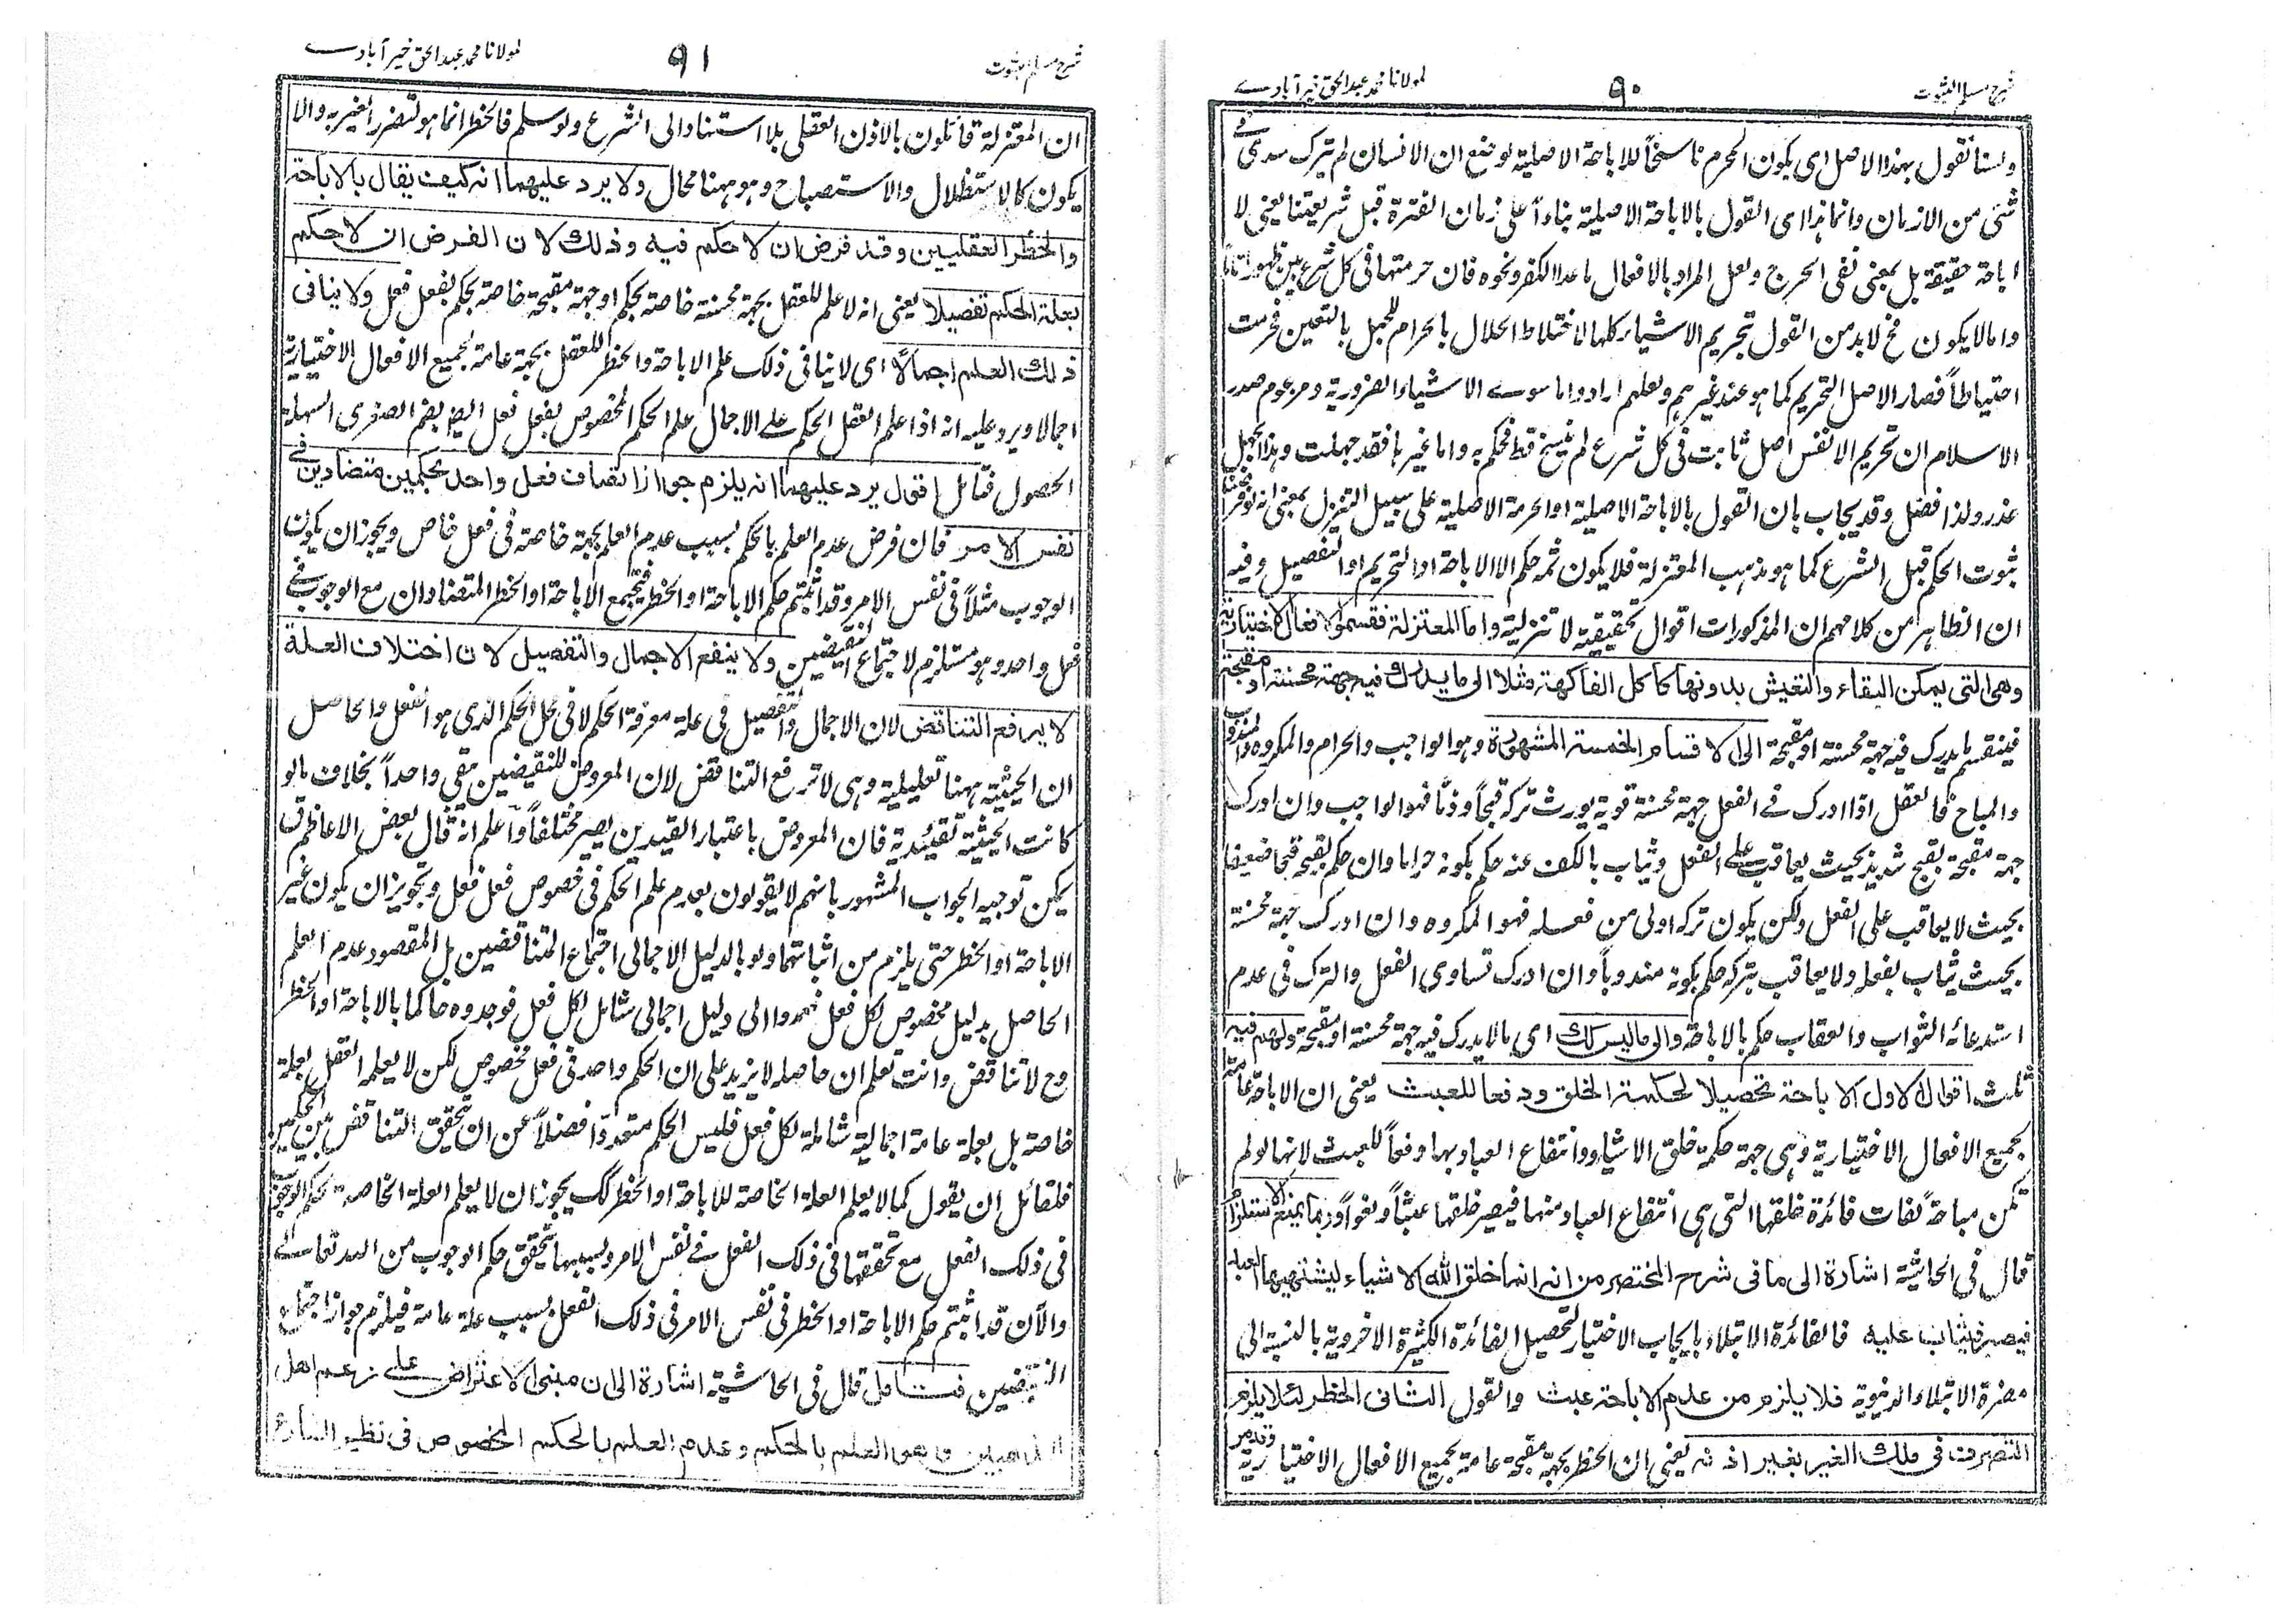 شرح مسلم الثبوت
٩٠
لمولانا محمد عبدالحق خیرآبادے
ولسنا نقول بهذا الاصل ای یکون المحرم ناسخاً للاباحة الاصلیة لوضع ان الانسان لم یترک سدی فی
شئ من الازمان وانما هذا ای القول بالاباحة الاصلیة بناءاً علی زمان الفترة قبل شریعتنا یعنی لا
اباحة حقیقة بل بمعنی نفی الحرج ولعل المراد بالافعال ما عدا الکفر ونحوه فان حرمتها فی کل شرع بین ظهوراً تاماً
واما لا یکون فح لا بد من القول بتحریم الاشیاء کلها لاختلاط الحلال بالحرام للجهل بالتعین فحرمت
احتیاطاً فصار الاصل التحریم کما هو عند غیرهم ولعلهم ارادوا ما سوے الاشیاء الضروریة ومزعوم صدر
الاسلام ان تحریم الانفس اصل ثابت فی کل شرع لم ینسخ قط فحکم به واما غیرها فقد جهلت وهذا الجهل
عذر ولذا فصل وقد یجاب بان القول بالاباحة الاصلیة او الحرمة الاصلیة علی سبیل التنزل بمعنی انه لو فرضنا
ثبوت الحکم قبل الشرع کما هو مذهب المعتزلة فلا یکون ثمه حکم الا الاباحة او التحریم او التفصیل وفیه
ان الظاهر من کلامهم ان المذکورات اقوال تحقیقیة لا تنزلیة واما المعتزلة فقسموا الافعال الاختیاریة
وهی التی یمکن البقاء والتعیش بدونها کاکل الفاکهة مثلا الی ما یدرک فیه جهة محسنة او مقبحة
فینقسم ما یدرک فیه جهة محسنة او مقبحة الی الاقسام الخمسة المشهورة وهو الواجب والحرام والمکروه والمندوب
والمباح فالعقل اذا ادرک فے الفعل جهة محسنة قویة یورث ترکه قبحاً وذماً فهو الواجب وان ادرک
جهة مقبحة بقبح شدید بحیث یعاقب علی الفعل ویثاب بالکف عنه حکم بکونه حراما وان حکم بقبحه قبحا ضعیفا
بحیث لا یعاقب علی الفعل ولکن یکون ترکه اولی من فعله فهو المکروه وان ادرک جهة محسنة
بحیث یثاب بفعله ولا یعاقب بترکه حکم بکونه مندوباً وان ادرک تساوی الفعل والترک فی عدم
استدعائه الثواب والعقاب حکم بالاباحة والی ما لیس کک ای ما لا یدرک فیه جهة محسنة او مقبحة ولهم فیه
ثلث اقوال الاول الاباحة تحصیلا لحکمة الخلق ودفعا للعبث یعنی ان الاباحة عامة
بجمیع الافعال الاختیاریة وهی جهة حکمة خلق الاشیاء وانتفاع العباد بها دفعاً للعبث لانها لو لم
تکن مباحة لفات فائدة خلقها التی هی انتفاع العباد منها فیصیر خلقها عبثاً ولغواً وربما یمنع الاستلزام
قال فی الحاشیة اشارة الی ما فی شرح المختصر من انه انما خلق الله الاشیاء لیشتهیها العبد
فیصبر فیثاب علیه فالفائدة الابتلاء بایجاب الاختیار لتحصیل الفائدة الکثیرة الاخرویة بالنسبة الی
مضرة الابتلاء الدنیویة فلا یلزم من عدم الاباحة عبث والقول الثانی الحظر لئلا یلزم
التصرف فی ملک الغیر بغیر اذنه یعنی ان الحظر بجهة مقبحة عامة بجمیع الافعال الاختیاریة وقد مر
شرح مسلم الثبوت
٩١
لمولانا محمد عبدالحق خیرآبادے
ان المعتزلة قائلون بالاذن العقلی بلا استناد الی الشرع ولو سلم فالحظر انما هو لتضرر الغیر به والا
یکون کالاستظلال والاستصباح وهو ههنا محال ولا یرد علیهما انه کیف یقال بالاباحة
والحظر العقلیین وقد فرض ان لا حکم فیه وذلک لان الفرض ان لا حکم
بعلة الحکم تفصیلا یعنی انه لا علم للعقل بجهة محسنة خاصة بحکم او جهة مقبحة خاصة بحکم بفعل فعل ولا ینافی
ذلک العلم اجمالاً ای لا ینافی ذلک علم الاباحة والحظر للعقل بجهة عامة لجمیع الافعال الاختیاریة
اجمالا ویرد علیه انه اذا علم العقل الحکم علی الاجمال علم الحکم المخصوص بفعل فعل ایضا بضم الصغری السهلة
الحصول فتأمل اقول یرد علیهما انه یلزم جواز اتصاف فعل واحد بحکمین متضادین فے
نفس الامر فان فرض عدم العلم بالحکم بسبب عدم العلم بجهة خاصة فی فعل خاص ویجوز ان یکون
الوجوب مثلاً فی نفس الامر وقد اثبتم حکم الاباحة او الحظر فیجتمع الاباحة او الحظر المتضادان مع الوجوب فے
فعل واحد وهو مستلزم لاجتماع النقیضین ولا ینفع الاجمال والتفصیل لان اختلاف العلة
لا یرفع التناقض لان الاجمال والتفصیل فی علة معرفة الحکم لا فی محل الحکم الذی هو الفعل والحاصل
ان الحیثیة ههنا تعلیلیة وهی لا ترفع التناقض لان المعروض للنقیضین بقی واحداً بخلاف ما لو
کانت الحیثیة تقییدیة فان المعروض باعتبار القیدین یصیر مختلفاً واعلم انه قال بعض الاعاظم ق
یمکن توجیه الجواب المشهور بانهم لا یقولون بعدم علم الحکم فی خصوص فعل فعل وتجویز ان یکون غیر
الاباحة او الحظر حتی یلزم من اثباتهما ولو بالدلیل الاجمالی اجتماع المتناقضین بل المقصود عدم العلم
الحاصل بدلیل مخصوص لکل فعل فعمدوا الی دلیل اجمالی شامل لکل فعل فوجدوه حاکما بالاباحة او الحظر
وح لا تناقض وانت تعلم ان حاصله لا یزید علی ان الحکم واحد فی فعل مخصوص لکن لا یعلمه العقل بعلة
خاصة بل بعلة عامة اجمالیة شاملة لکل فعل فلیس الحکم متعدداً فضلاً عن ان یتحقق التناقض بین الحکمین
فلقائل ان یقول کما لا یعلم العلة الخاصة للاباحة او الحظر کک یجوز ان لا یعلم العلة الخاصة لحکم الوجوب
فی ذلک الفعل مع تحققها فی ذلک الفعل فے نفس الامر وبسببها یتحقق حکم الوجوب من الله تعالے
والآن قد اثبتم حکم الاباحة او الحظر فی نفس الامر فی ذلک الفعل بسبب علة عامة فیلزم جواز اجتماع
النقیضین فتأمل قال فی الحاشیة اشارة الی ان مبنی الاعتراض علی زعم اهل
المذهبین العلم بالحکم وعدم العلم بالحکم المخصوص فی نظیر الشارع